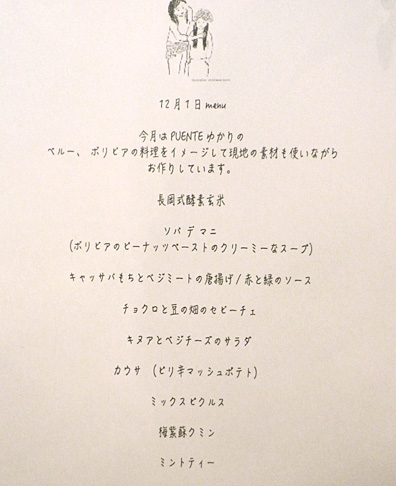 12月1日 menu
今月は PUENTE ゆかりの
ペルー、ボリビアの料理をイメージして現地の素材も使いながら
お作りしています。
長岡式酵素玄米
ソパ デ マニ
(ボリビアのピーナッツペーストのクリーミーなスープ)
キャッサバもちとベジミートの唐揚げ / 赤と緑のソース
チョクロと豆の畑のセビーチェ
キヌアとベジチーズのサラダ
カウサ (ピリ辛マッシュポテト)
ミックスピクルス
梅紫蘇クミン
ミントティー